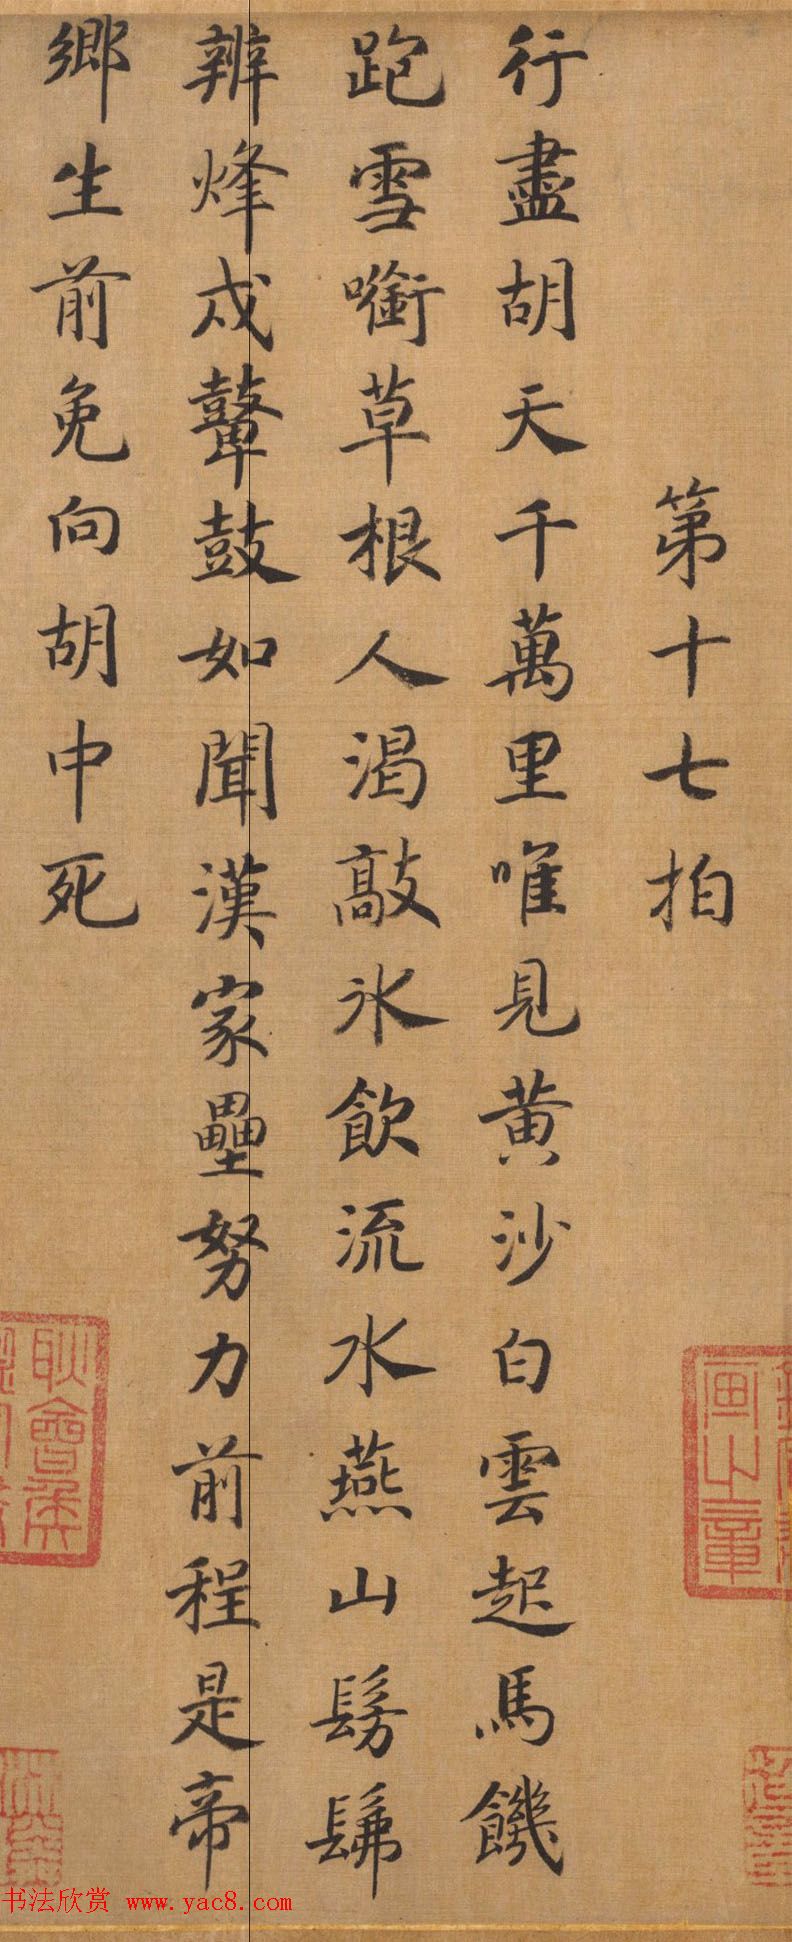 第十七拍
行盡胡天千萬里唯見黃沙白雲起馬饑
跑雪嚙草根人渴敲氷飲流水燕山髣髴
辨烽戍鼙鼓如聞漢家壘努力前程是帝
鄉生前免向胡中死
畫之章
耿會侯
书法欣赏 www.yac8.com